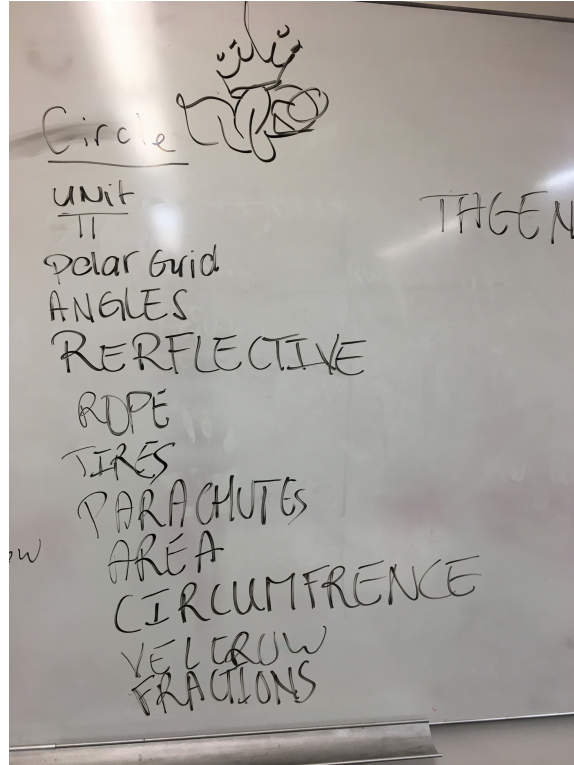 Circle
unit
π
polar Grid
ANGLES
RERFLECTIVE
ROPE
TIRES
PARACHUTES
AREA
CIRCUMFRENCE
VELCROW
FRACTIONS
THGEN